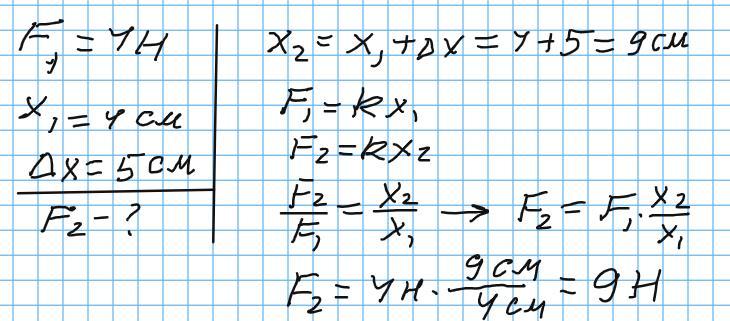 F₁ = 4Н
x₁ = 4 см
Δx = 5 см
F₂ - ?
x₂ = x₁ + Δx = 4 + 5 = 9 см
F₁ = kx₁
F₂ = kx₂
F₂/F₁ = x₂/x₁ → F₂ = F₁ · x₂/x₁
F₂ = 4н · 9 см/4 см = 9 Н